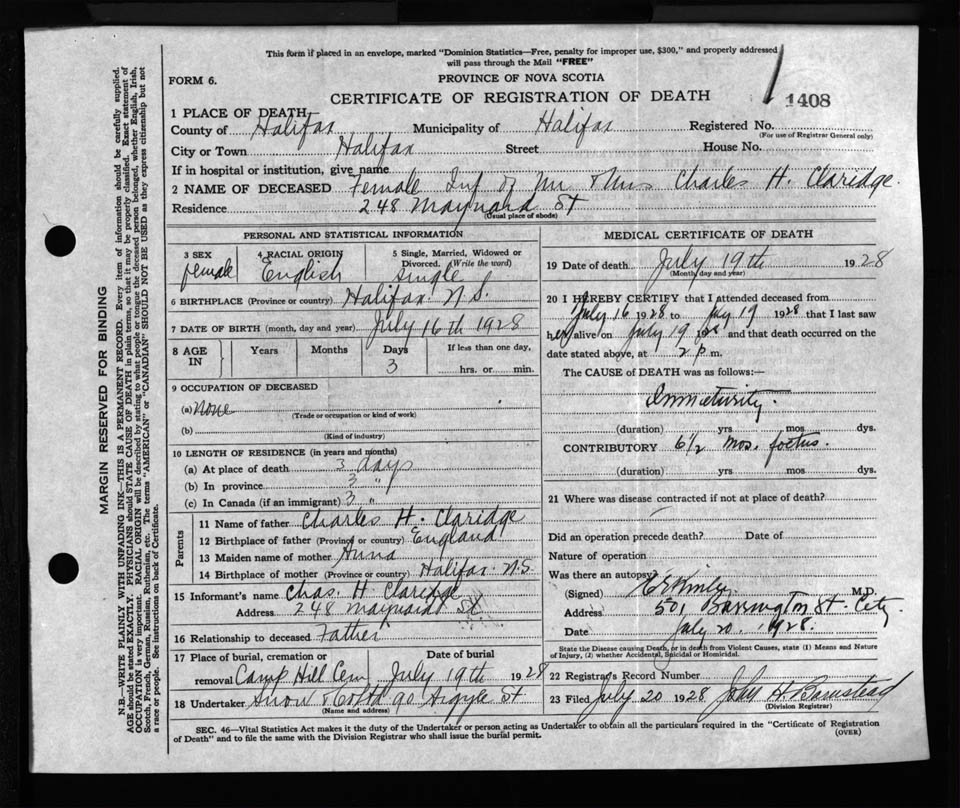 This form if placed in an envelope, marked "Dominion Statistics—Free, penalty for improper use, $300," and properly addressed
will pass through the Mail "FREE"
FORM 6.
PROVINCE OF NOVA SCOTIA
CERTIFICATE OF REGISTRATION OF DEATH
1408
1 PLACE OF DEATH
County of Halifax Municipality of Halifax Registered No.
(For use of Registrar General only)
City or Town Halifax Street House No.
If in hospital or institution, give name
2 NAME OF DECEASED Female Inf of Mr & Mrs Charles H. Claridge.
Residence 248 Maynard St
(Usual place of abode)
PERSONAL AND STATISTICAL INFORMATION
3 SEX female
4 RACIAL ORIGIN English
5 Single, Married, Widowed or
Divorced. (Write the word)
Single
6 BIRTHPLACE (Province or country) Halifax. N.S.
7 DATE OF BIRTH (month, day and year) July 16th 1928
8 AGE IN Years Months Days 3 If less than one day,
hrs. or min.
9 OCCUPATION OF DECEASED
(a) None
(Trade or occupation or kind of work)
(b)
(Kind of industry)
10 LENGTH OF RESIDENCE (in years and months)
(a) At place of death 3 days
(b) In province 3 "
(c) In Canada (if an immigrant) 3 "
Parents
11 Name of father Charles H. Claridge
12 Birthplace of father (Province or country) England
13 Maiden name of mother
14 Birthplace of mother (Province or country) Halifax N.S.
15 Informant's name Chas. H. Claridge
Address 248 Maynard St
16 Relationship to deceased Father
17 Place of burial, cremation or Date of burial
removal Camp Hill Cem July 19th 1928
18 Undertaker Snow & Co Ltd 90 Argyle St
(Name and address)
MEDICAL CERTIFICATE OF DEATH
19 Date of death July 19th 1928
(Month, day and year)
20 I HEREBY CERTIFY that I attended deceased from
July 16 1928 to July 19 1928 that I last saw
her alive on July 19 1928 and that death occurred on the
date stated above, at 2 p m.
The CAUSE of DEATH was as follows:—
Immaturity.
(duration) yrs mos. dys.
CONTRIBUTORY 6 1/2 mos. foetus.
(duration) yrs mos. dys.
21 Where was disease contracted if not at place of death?
Did an operation precede death? Date of
Nature of operation
Was there an autopsy?
(Signed) M.D.
Address 501 Barrington St. City
Date July 20. 1928.
State the Disease causing Death, or in death from Violent Causes, state (1) Means and Nature
of Injury, (2) whether Accidental, Suicidal or Homicidal.
22 Registrar's Record Number
23 Filed July 20 1928 John H Barnstead
(Division Registrar)
SEC. 46—Vital Statistics Act makes it the duty of the Undertaker or person acting as Undertaker to obtain all the particulars required in the "Certificate of Registration
of Death" and to file the same with the Division Registrar who shall issue the burial permit.
(OVER)
MARGIN RESERVED FOR BINDING
N.B.—WRITE PLAINLY WITH UNFADING INK—THIS IS A PERMANENT RECORD. Every item of information should be carefully supplied.
AGE should be stated EXACTLY. PHYSICIANS should STATE CAUSE OF DEATH in plain terms, so that it may be properly classified. Exact statement of
OCCUPATION is very important. RACIAL ORIGIN will be described by stating to what people or tongue the deceased person belonged, whether English, Irish,
Scotch, French, German, Russian, Ruthenian, etc. The terms "AMERICAN" or "CANADIAN" SHOULD NOT BE USED as they express citizenship but not
a race or people. See instructions on back of Certificate.